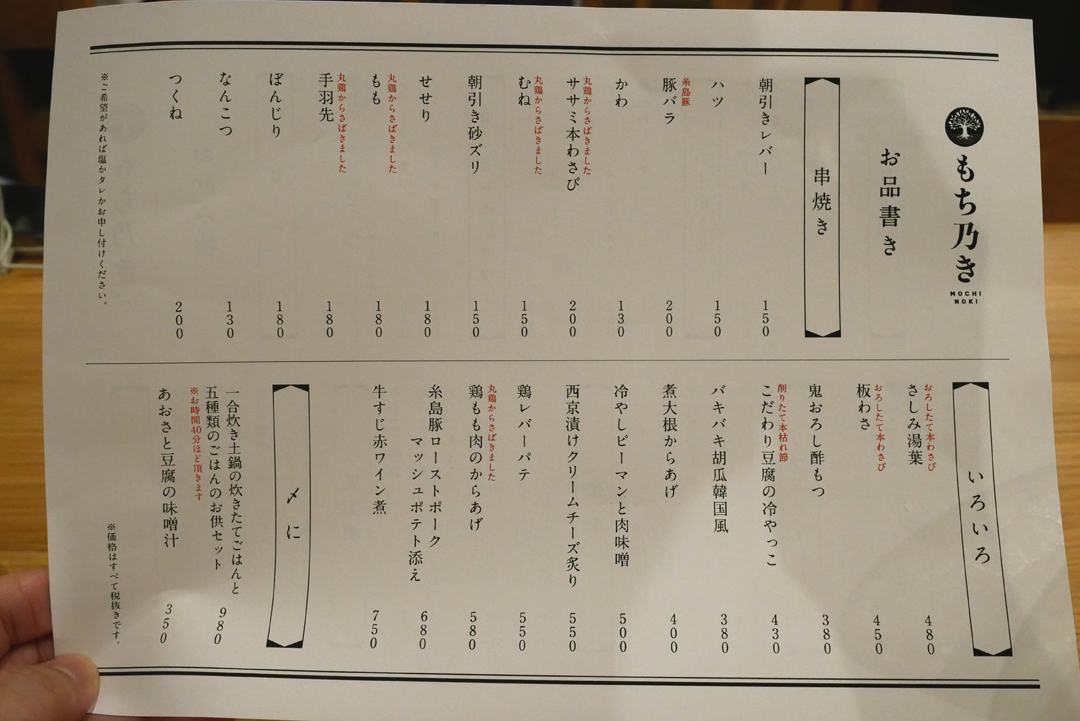 もち乃き
MOCHI
NOKI
お品書き
串焼き
朝引きレバー
150
ハツ
150
糸島豚
豚バラ
200
かわ
130
丸鶏からさばきました
ササミ本わさび
200
丸鶏からさばきました
むね
150
朝引き砂ズリ
150
せせり
180
丸鶏からさばきました
もも
180
丸鶏からさばきました
手羽先
180
ぼんじり
180
なんこつ
130
つくね
200
※ご希望があれば塩かタレかお申し付けください。
いろいろ
おろしたて本わさび
さしみ湯葉
480
おろしたて本わさび
板わさ
450
鬼おろし酢もつ
380
削りたて本枯れ節
こだわり豆腐の冷やっこ
430
バキバキ胡瓜韓国風
380
煮大根からあげ
400
冷やしピーマンと肉味噌
500
西京漬けクリームチーズ炙り
550
鶏レバーパテ
550
丸鶏からさばきました
鶏もも肉のからあげ
580
糸島豚ローストポーク
マッシュポテト添え
680
牛すじ赤ワイン煮
750
〆に
一合炊き土鍋の炊きたてごはんと
五種類のごはんのお供セット
980
※お時間40分ほど頂きます
あおさと豆腐の味噌汁
350
※価格はすべて税抜きです。